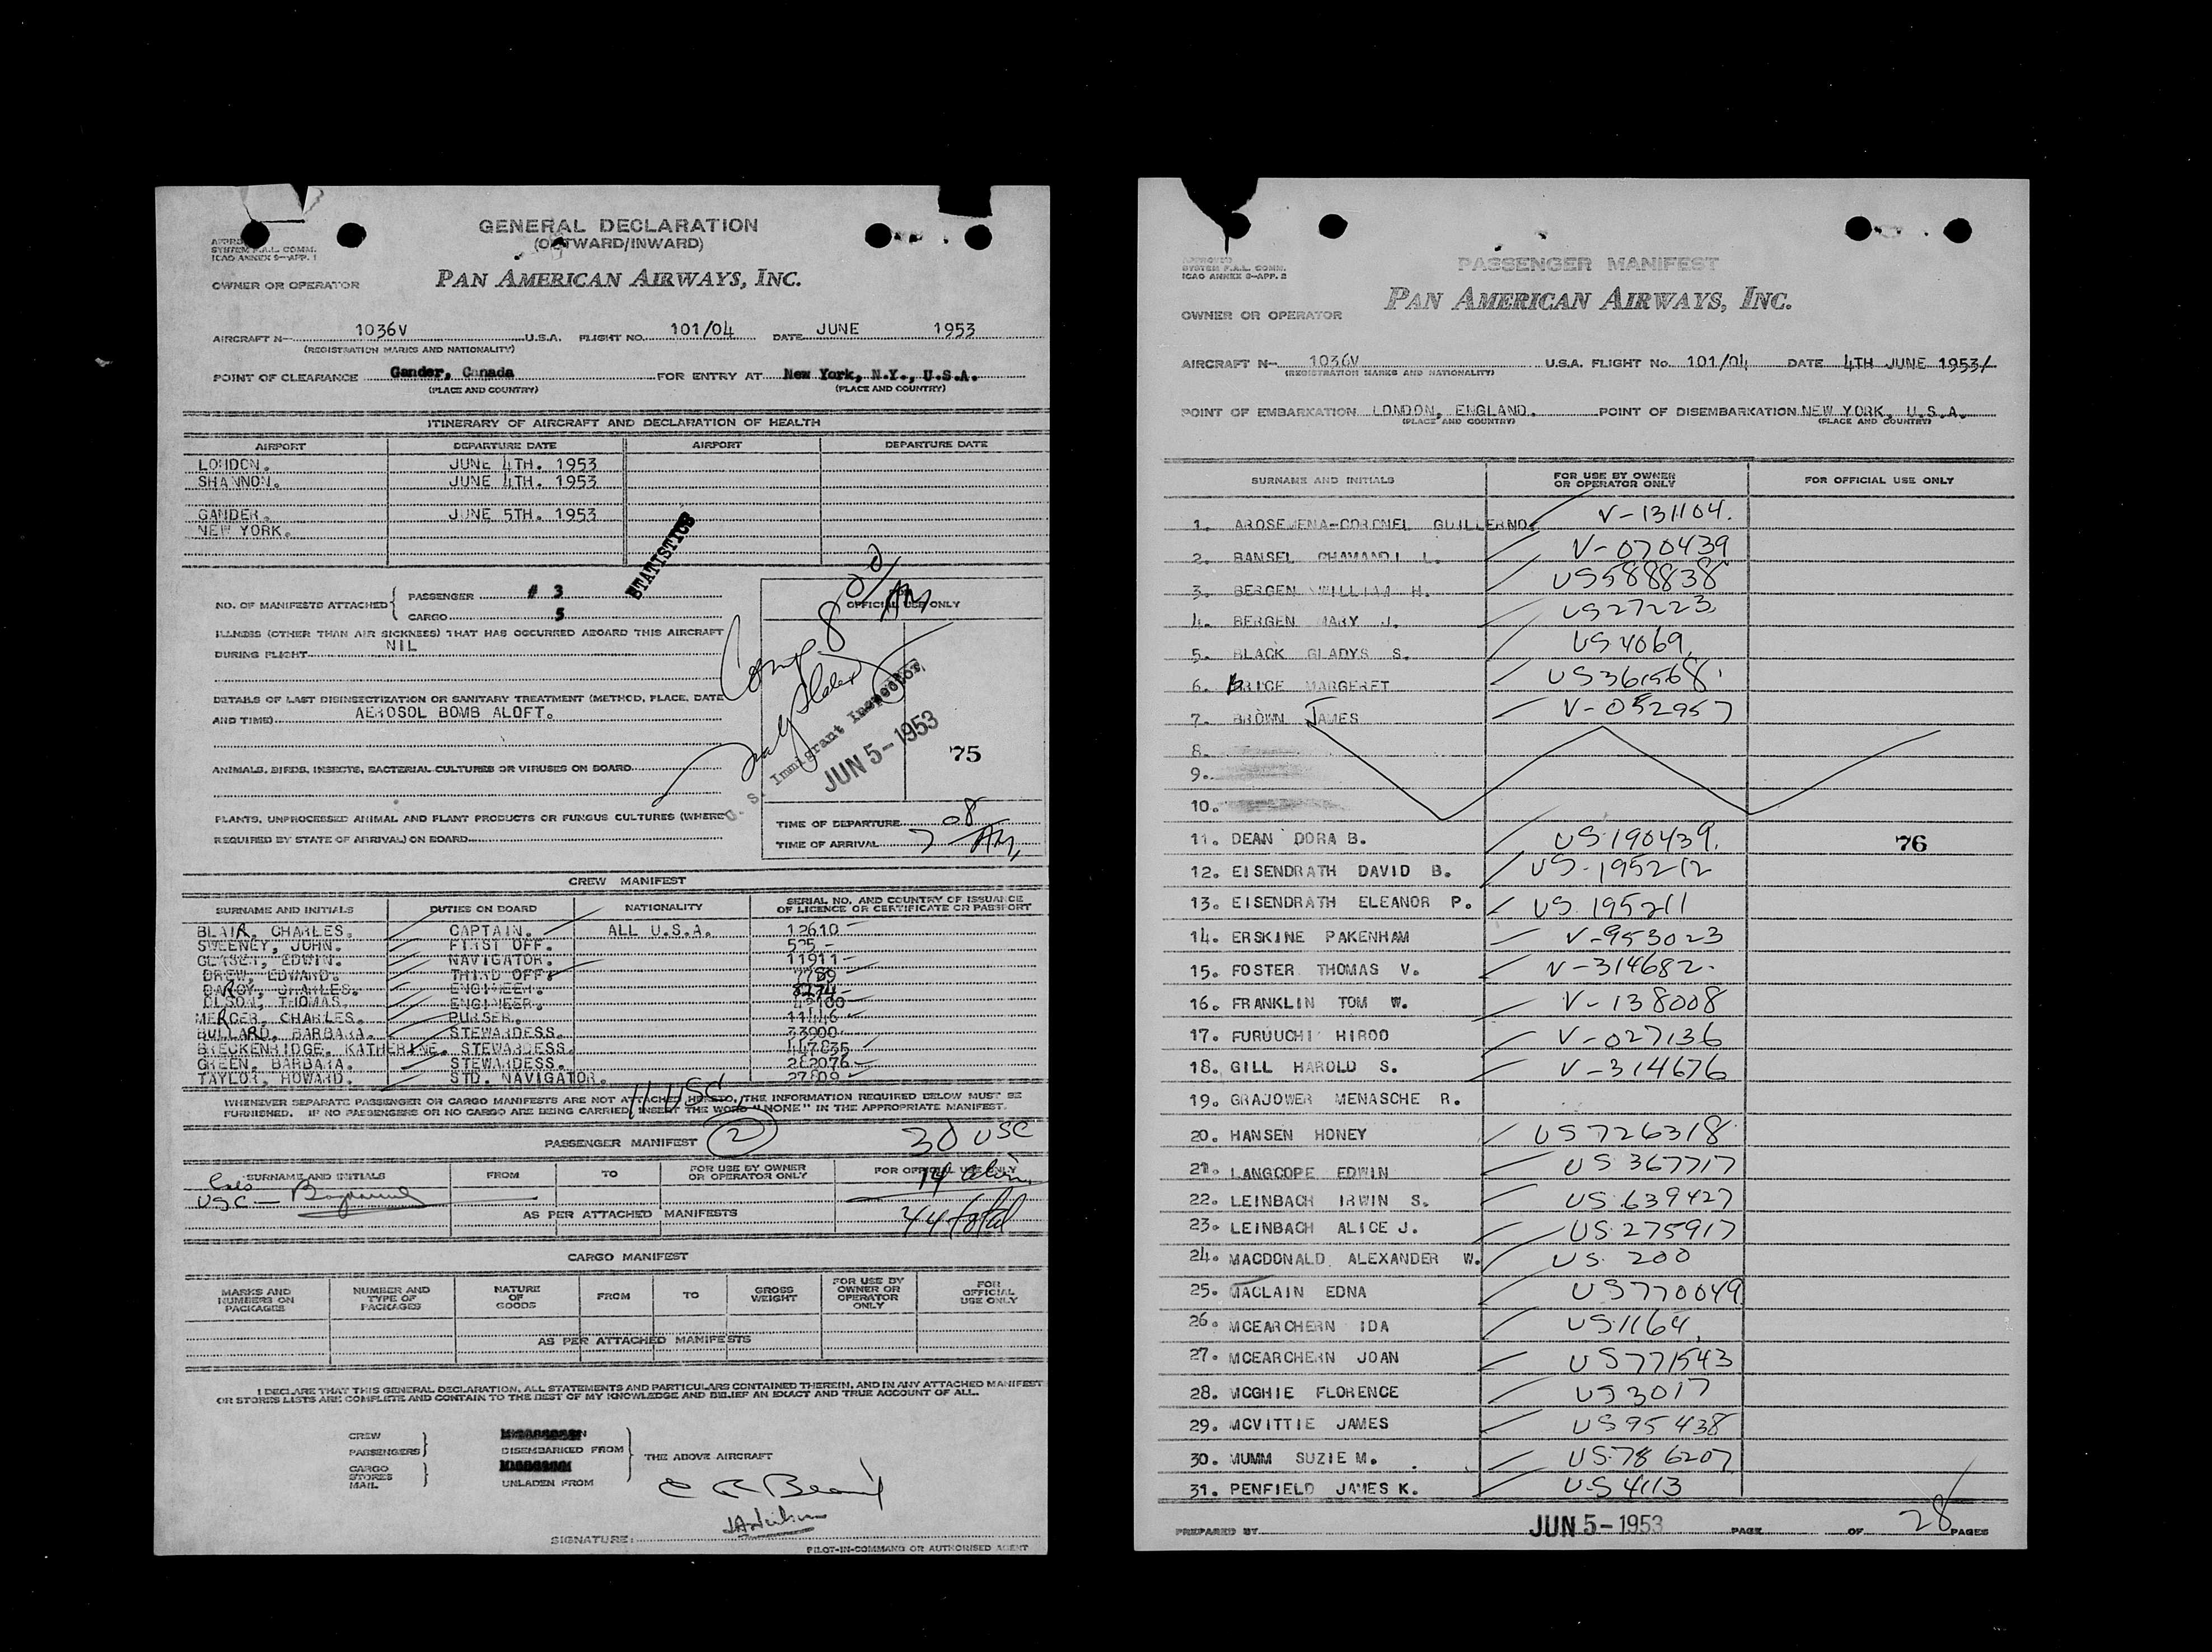 GENERAL DECLARATION
(OUTWARD/INWARD)
SYSTEM F.A.L. COMM.
ICAO ANNEX 9—APP. 1
OWNER OR OPERATOR PAN AMERICAN AIRWAYS, INC.
AIRCRAFT N- 1036V U.S.A. FLIGHT NO. 101/04 DATE JUNE 1953
(REGISTRATION MARKS AND NATIONALITY)
POINT OF CLEARANCE Gander, Canada FOR ENTRY AT New York, N.Y., U.S.A.
(PLACE AND COUNTRY) (PLACE AND COUNTRY)
ITINERARY OF AIRCRAFT AND DECLARATION OF HEALTH
AIRPORT DEPARTURE DATE AIRPORT DEPARTURE DATE
LONDON. JUNE 4TH. 1953
SHANNON. JUNE 4TH. 1953
GANDER. JUNE 5TH. 1953
NEW YORK.
STATISTICS
NO. OF MANIFESTS ATTACHED PASSENGER # 3
CARGO 5
OFFICIAL USE ONLY
Comp. 8 00/AM
ILLNESS (OTHER THAN AIR SICKNESS) THAT HAS OCCURRED ABOARD THIS AIRCRAFT
DURING FLIGHT NIL
DETAILS OF LAST DISINSECTIZATION OR SANITARY TREATMENT (METHOD, PLACE, DATE
AND TIME) AEROSOL BOMB ALOFT.
U. S. Immigrant Inspector
JUN 5-1953
75
ANIMALS, BIRDS, INSECTS, BACTERIAL CULTURES OR VIRUSES ON BOARD
PLANTS, UNPROCESSED ANIMAL AND PLANT PRODUCTS OR FUNGUS CULTURES (WHERE
REQUIRED BY STATE OF ARRIVAL) ON BOARD
TIME OF DEPARTURE
TIME OF ARRIVAL 7 08 AM
CREW MANIFEST
SURNAME AND INITIALS DUTIES ON BOARD NATIONALITY SERIAL NO. AND COUNTRY OF ISSUANCE
OF LICENCE OR CERTIFICATE OR PASSPORT
BLAIR, CHARLES. CAPTAIN. ALL U.S.A. 12610
SWEENEY, JOHN. FIRST OFF. 525
EDWIN. NAVIGATOR. 11911
DREW, EDWARD. THIRD OFF. 7789
DARCY, CHARLES. ENGINEER. 8274
OLSON, THOMAS. ENGINEER.
MERCER, CHARLES. PURSER. 11446
BULLARD, BARBARA. STEWARDESS. 33900
BRECKENRIDGE, KATHERINE. STEWARDESS. 447835
GREEN, BARBARA. STEWARDESS. 282076
TAYLOR, HOWARD. STD. NAVIGATOR. 27809
11 USC
WHENEVER SEPARATE PASSENGER OR CARGO MANIFESTS ARE NOT ATTACHED HERETO, THE INFORMATION REQUIRED BELOW MUST BE
FURNISHED. IF NO PASSENGERS OR NO CARGO ARE BEING CARRIED, INSERT THE WORD "NONE" IN THE APPROPRIATE MANIFEST.
PASSENGER MANIFEST 2 30 USC
SURNAME AND INITIALS FROM TO FOR USE BY OWNER
OR OPERATOR ONLY FOR OFFICIAL USE ONLY
14 alien
USC —
AS PER ATTACHED MANIFESTS 44 total
CARGO MANIFEST
MARKS AND
NUMBERS ON
PACKAGES NUMBER AND
TYPE OF
PACKAGES NATURE
OF
GOODS FROM TO GROSS
WEIGHT FOR USE BY
OWNER OR
OPERATOR
ONLY FOR
OFFICIAL
USE ONLY
AS PER ATTACHED MANIFESTS
I DECLARE THAT THIS GENERAL DECLARATION, ALL STATEMENTS AND PARTICULARS CONTAINED THEREIN, AND IN ANY ATTACHED MANIFEST
OR STORES LISTS ARE COMPLETE AND CONTAIN TO THE BEST OF MY KNOWLEDGE AND BELIEF AN EXACT AND TRUE ACCOUNT OF ALL.
CREW
PASSENGERS DISEMBARKED FROM THE ABOVE AIRCRAFT
CARGO
STORES
MAIL UNLADEN FROM
SIGNATURE:
PILOT-IN-COMMAND OR AUTHORISED AGENT
APPROVED
SYSTEM F.A.L. COMM.
ICAO ANNEX 9—APP. 2
PASSENGER MANIFEST
PAN AMERICAN AIRWAYS, INC.
OWNER OR OPERATOR
AIRCRAFT N- 1036V U.S.A. FLIGHT No. 101/04 DATE 4TH JUNE 1953/
(REGISTRATION MARKS AND NATIONALITY)
POINT OF EMBARKATION LONDON, ENGLAND. POINT OF DISEMBARKATION NEW YORK, U.S.A.
(PLACE AND COUNTRY) (PLACE AND COUNTRY)
SURNAME AND INITIALS FOR USE BY OWNER
OR OPERATOR ONLY FOR OFFICIAL USE ONLY
1. AROSEMENA-CORONEL GUILLERNO. V-131104.
2. BANSEL CHAMANDI L. V-070439
3. BERGEN WILLIAM H. US588838
4. BERGEN MARY J. US27223
5. BLACK GLADYS S. US4069
6. BRICE MARGERET US361568
7. BROWN JAMES V-052957
8.
9.
10.
11. DEAN DORA B. US190439. 76
12. EISENDRATH DAVID B. US.195212
13. EISENDRATH ELEANOR P. US.195211
14. ERSKINE PAKENHAM V-953023
15. FOSTER THOMAS V. V-314682.
16. FRANKLIN TOM W. V-138008
17. FURUUCHI HIROO V-027136
18. GILL HAROLD S. V-314676
19. GRAJOWER MENASCHE R.
20. HANSEN HONEY US726318
21. LANGCOPE EDWIN US 367717
22. LEINBACH IRWIN S. US.639427
23. LEINBACH ALICE J. US.275917
24. MACDONALD ALEXANDER W. US. 200
25. MACLAIN EDNA US770049
26. MCEARCHERN IDA US1164
27. MCEARCHERN JOAN US771543
28. MCGHIE FLORENCE US3017
29. MCVITTIE JAMES US95438
30. MUMM SUZIE M. US786207
31. PENFIELD JAMES K. US4113
PREPARED BY JUN 5-1953 PAGE OF 28 PAGES